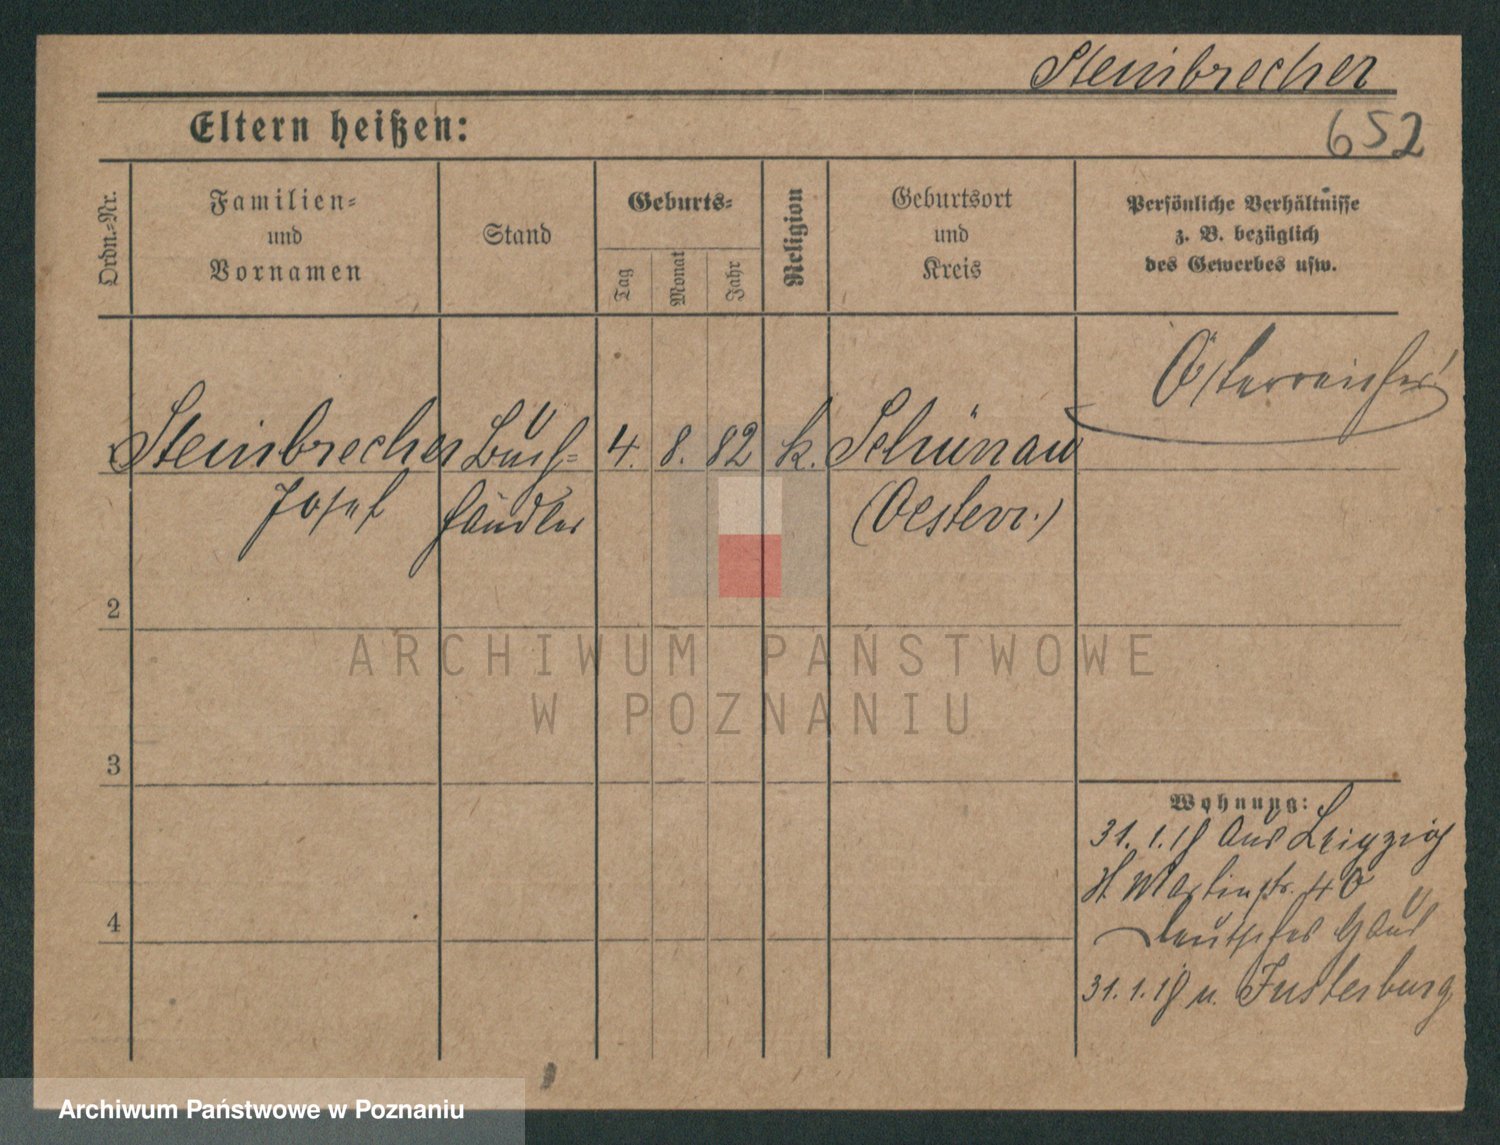 Steinbrecher
652
Eltern heißen:
Ordn.-Nr.
Familien-
und
Vornamen
Stand
Geburts-
Tag
Monat
Jahr
Religion
Geburtsort
und
Kreis
Persönliche Verhältnisse
z. B. bezüglich
des Gewerbes usw.
Österreicher!
Steinbrecher Buch= 4. 8. 82 k. Schünau
Josef händler (Oesterr.)
2
3
4
Wohnung:
31. 1. 19 aus Leipzig
St. Martinstr. 40
Deutsches Haus
31. 1. 19 n. Insterburg
ARCHIWUM PAŃSTWOWE
W POZNANIU
Archiwum Państwowe w Poznaniu